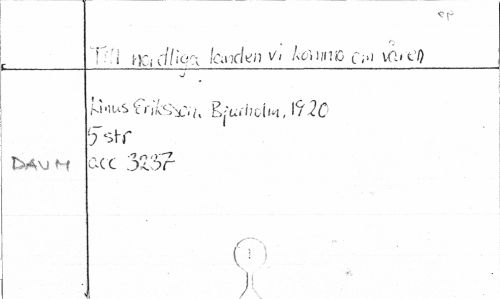 EP
Till nordliga landen vi kommo om våren
Linus Eriksson, Bjurholm, 1920
5 str
DAUM acc 3237